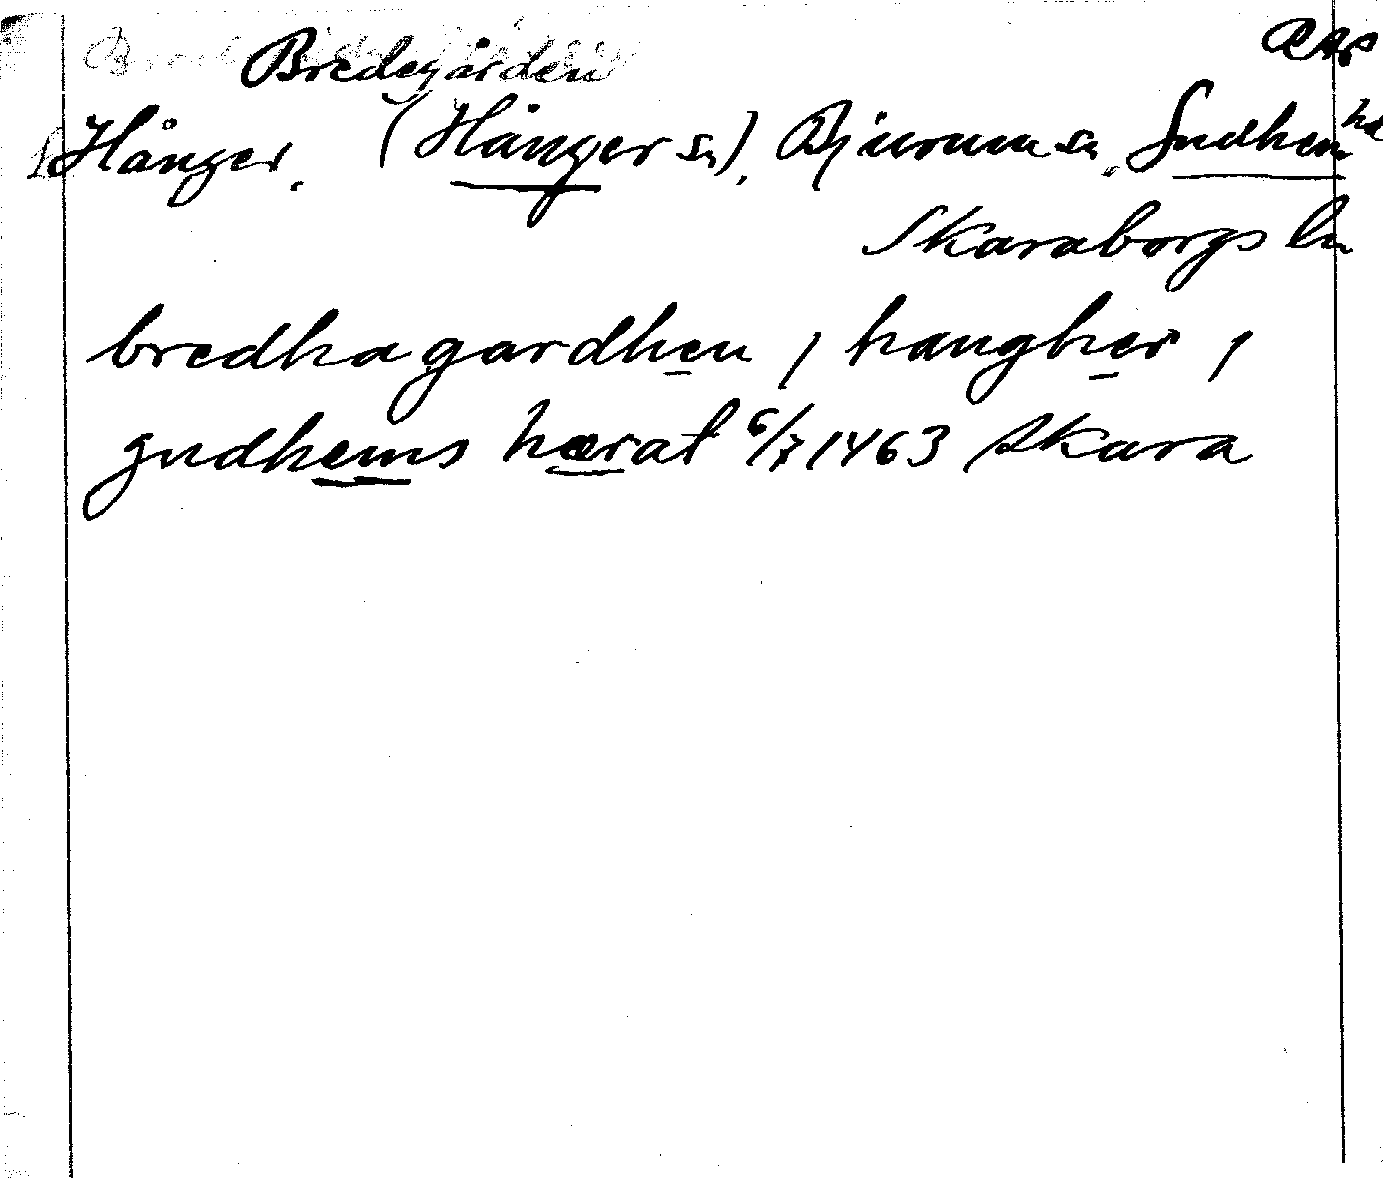 Bredegården
Hånger. (Hånger sn), Bjurum sn. Gudhem hd
Skaraborgs ln
bredhagardhen / hangher /
gudhems hærat 6/7 1463 Skara